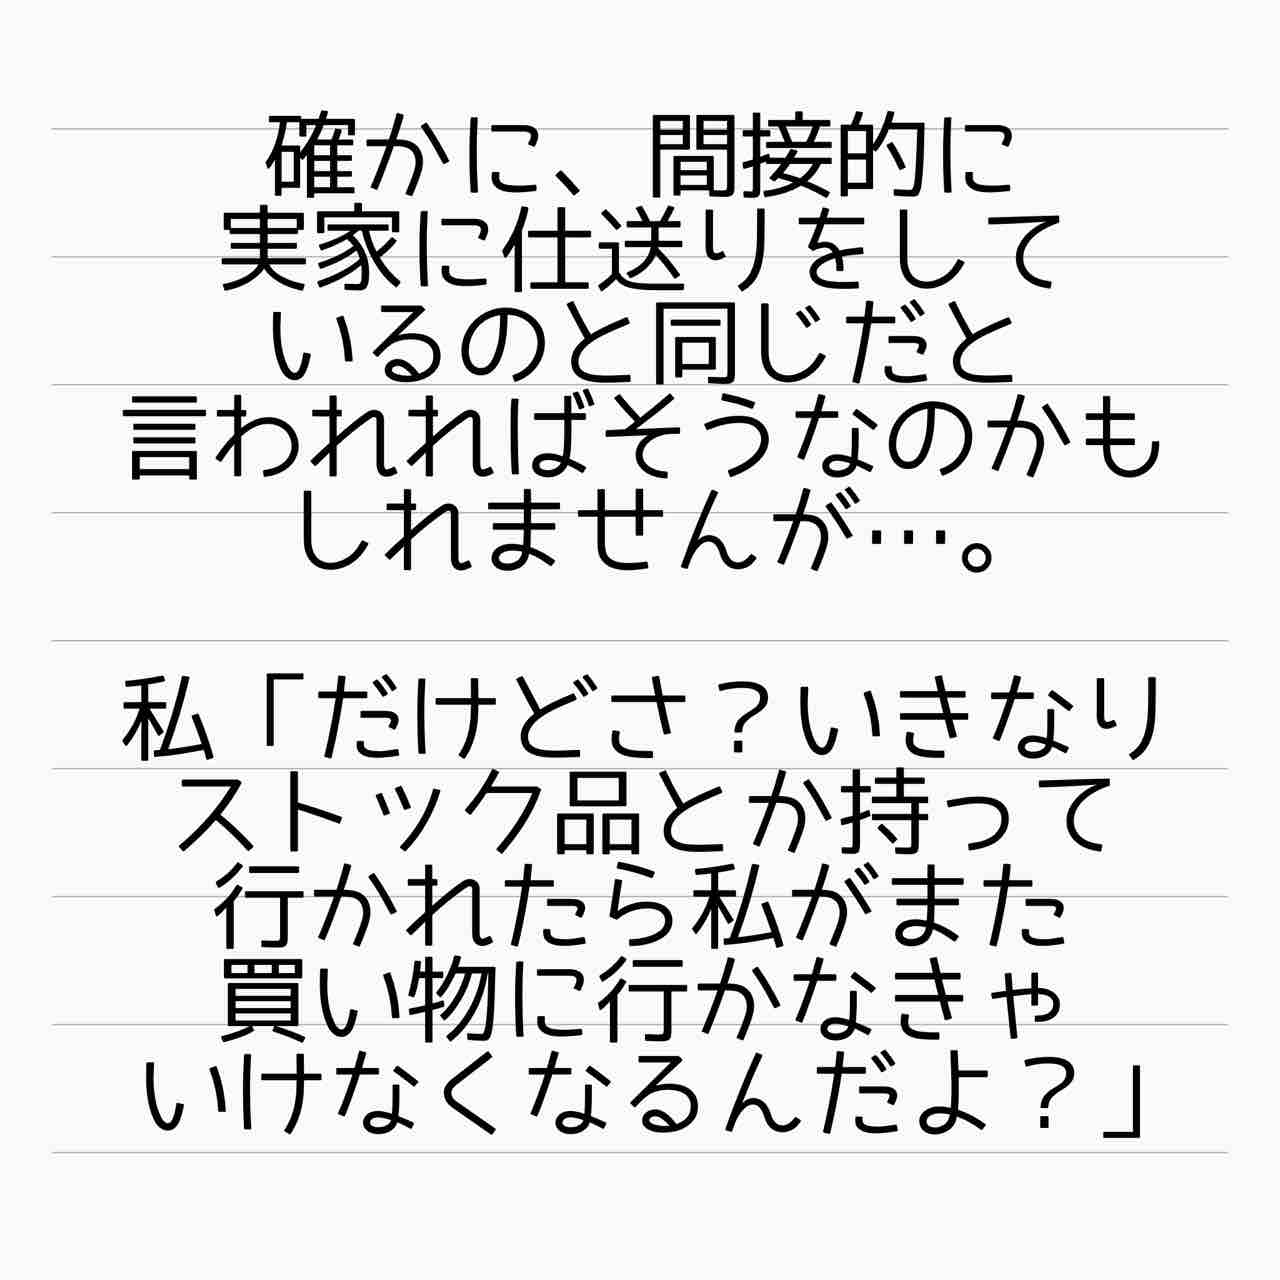 確かに、間接的に
実家に仕送りをして
いるのと同じだと
言われればそうなのかも
しれませんが…。
私「だけどさ？いきなり
ストック品とか持って
行かれたら私がまた
買い物に行かなきゃ
いけなくなるんだよ？」